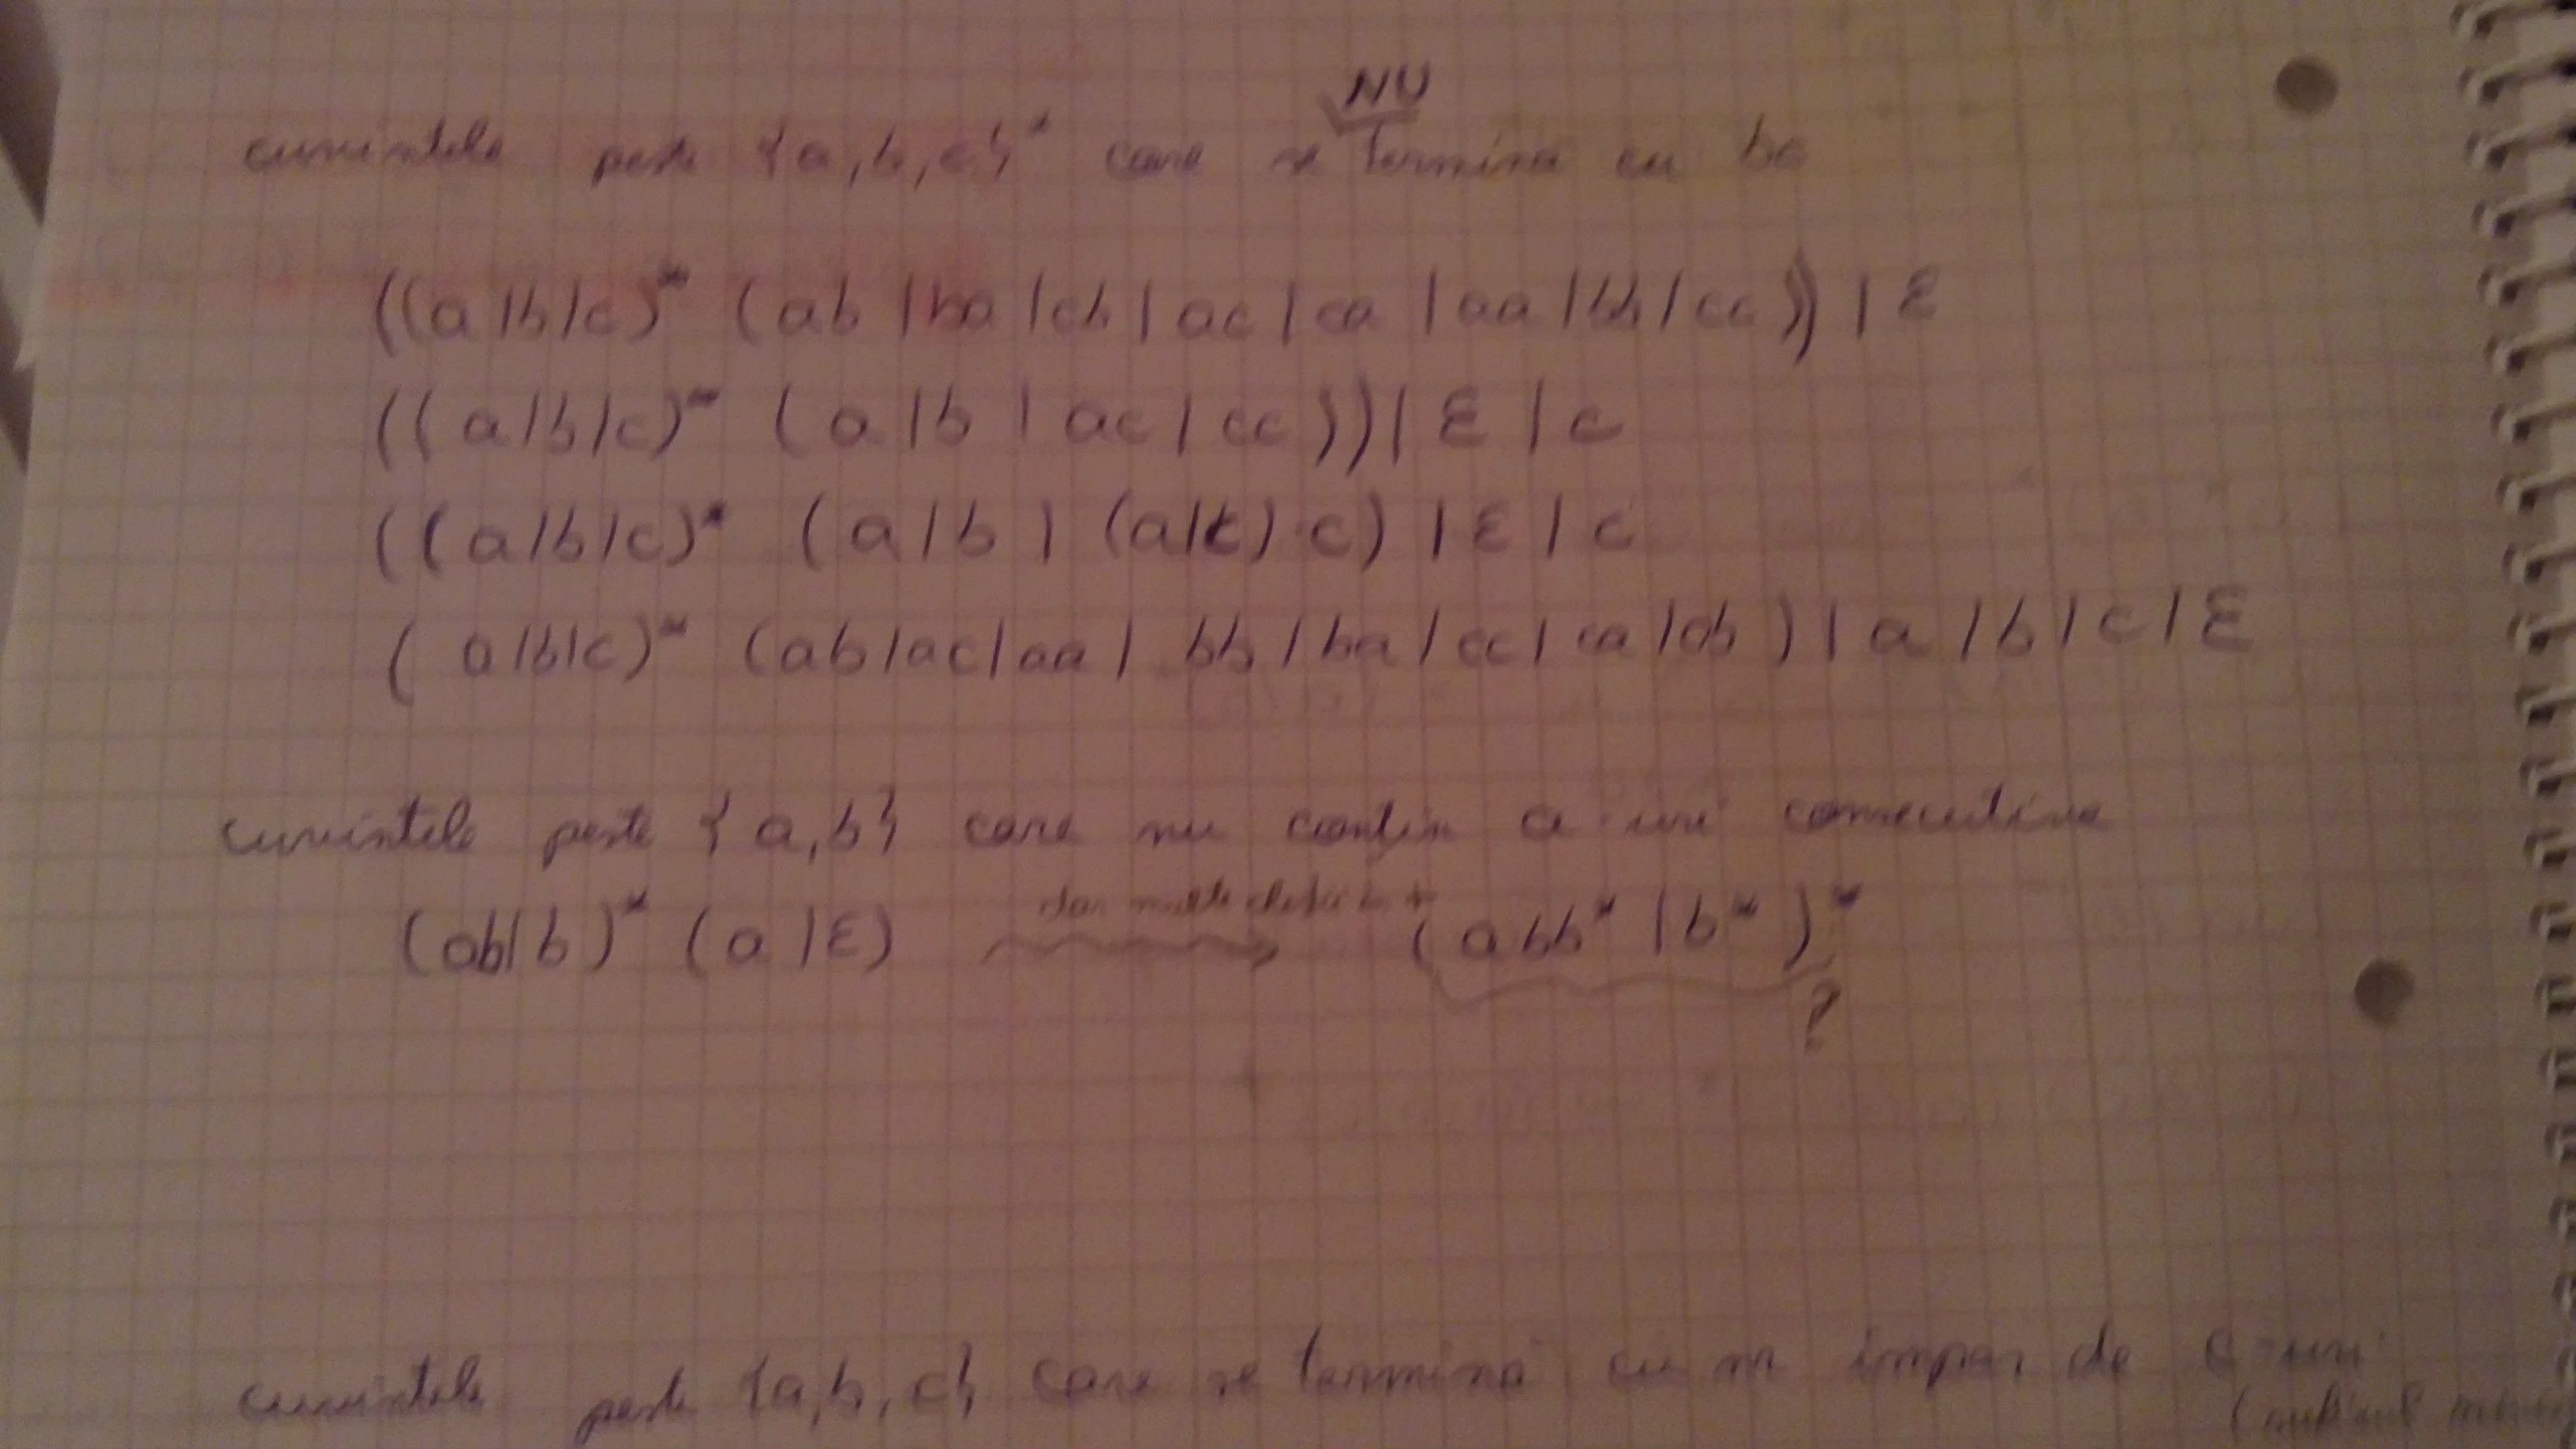 NU
cuvintele peste {a,b,c}* care se termină cu bc
((a|b|c)* (ab|ba|cb|ac|ca|aa|bb|cc))|ε
((a|b|c)* (a|b|ac|cc))|ε|c
((a|b|c)* (a|b|(a|c)c)|ε|c
(a|b|c)* (ab|ac|aa|bb|ba|cc|ca|cb)|a|b|c|ε
cuvintele peste {a,b} care nu conțin a-uri consecutive
(ab|b)* (a|ε) (abb*|b*)*
?
cuvintele peste {a,b,c} care se termină cu nr impar de